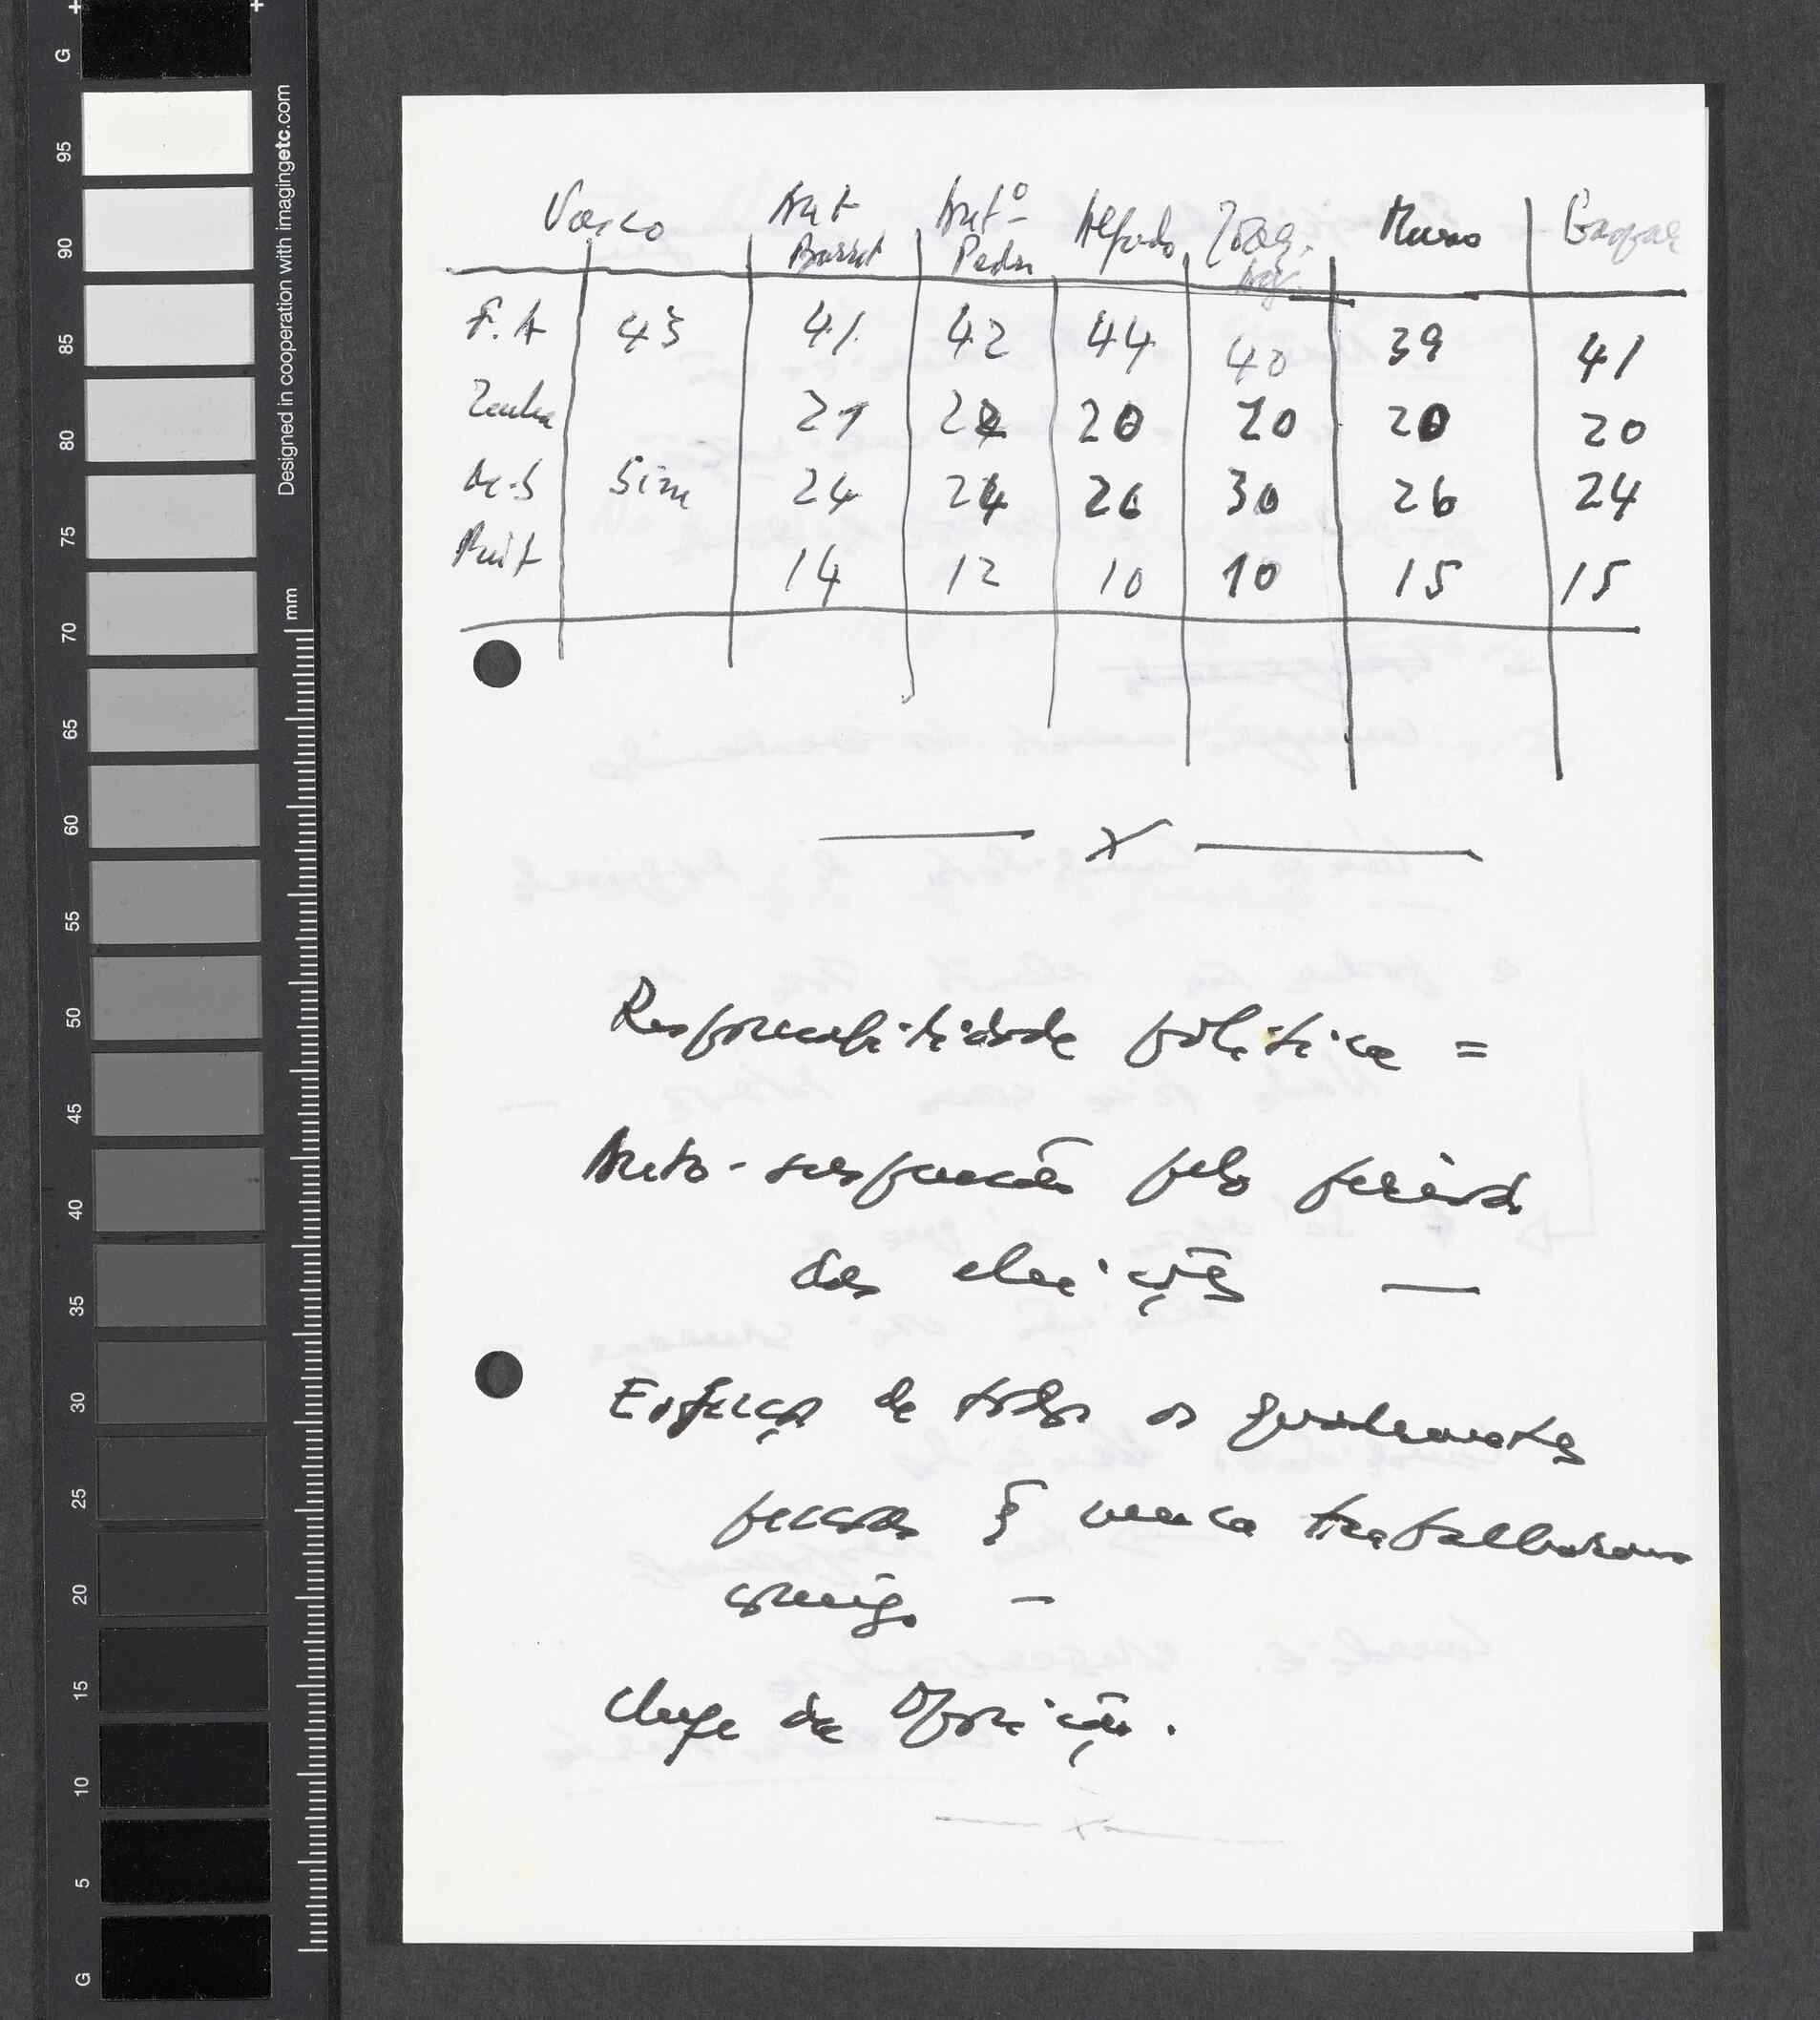 Vasco Ant Barret Antº Pedro Alfredo Joaq. Mário Gaspar
F.A 43 41 42 44 40 39 41
Zenha 21 22 20 20 20 20
M.S Sim 24 24 26 30 26 24
Pint 14 12 10 10 15 15
x
Responsabilidade política =
Auto-suspensão pelo período
das eleições —
Esforço de todos os quadrantes
pessoas q̃ nunca trabalharam
comigo —
Chefe da Oposição.
G
95
90
85
80
75
70
65
60
55
50
45
40
35
30
25
20
15
10
5
G
mm
Designed in cooperation with imagingetc.com